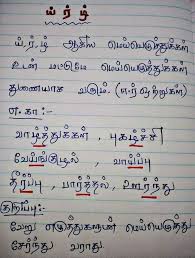 ய்ர்ழ்
ய், ர், ழ் ஆகிய மெய்யெழுத்துக்கள்
உடன் மட்டுமே மெய்யெழுத்துக்கள்
துணையாக வரும்.
எ. கா:-
வாழ்த்துக்கள், புகழ்ச்சி
வேய்ங்குழல், வாய்ப்பு
தீர்ப்பு, பார்த்தல், ஊர்ந்து
குறிப்பு:-
வேறு எழுத்துகளுடன் மெய்யெழுத்து
சேர்ந்து வராது.